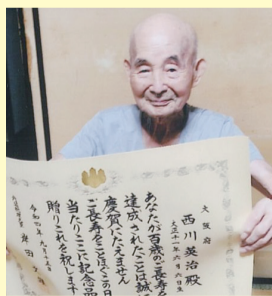 大阪府
西川英治殿
大正十一年六月六日
あなたが百歳のご長寿を
達成されたことは誠
慶賀にたえません
ご長寿をことほぐこの日
当たりここに記念品
贈りこれを祝します
令和四年九月十五日
内閣総理大臣 岸田